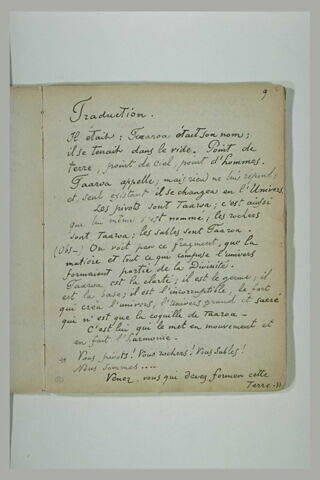 9
Traduction.
Il était; Taaroa était son nom;
il se tenait dans le vide. Point de
terre, point de ciel, point d'hommes.
Taaroa appelle; mais rien ne lui répond;
et, seul existant il se changea en l'Univers.
Les pivots sont Taaroa; c'est ainsi
que lui même s'est nommé; les rochers
sont Taaroa; les sables sont Taaroa.
(Obs—! On voit par ce fragment, que la
matière et tout ce qui compose l'univers
formaient partie de la Divinité.
Taaroa est la clarté; il est le germe; il
est la base; il est l'incorruptible, le fort
qui créa l'univers, l'univers grand et sacré
qui n'est que la coquille de Taaroa—
C'est lui qui le met en mouvement et
en fait l'harmonie.
Vous, pivots! Vous rochers! Vous Sables!
Nous sommes....
Venez, vous qui devez former cette
Terre.